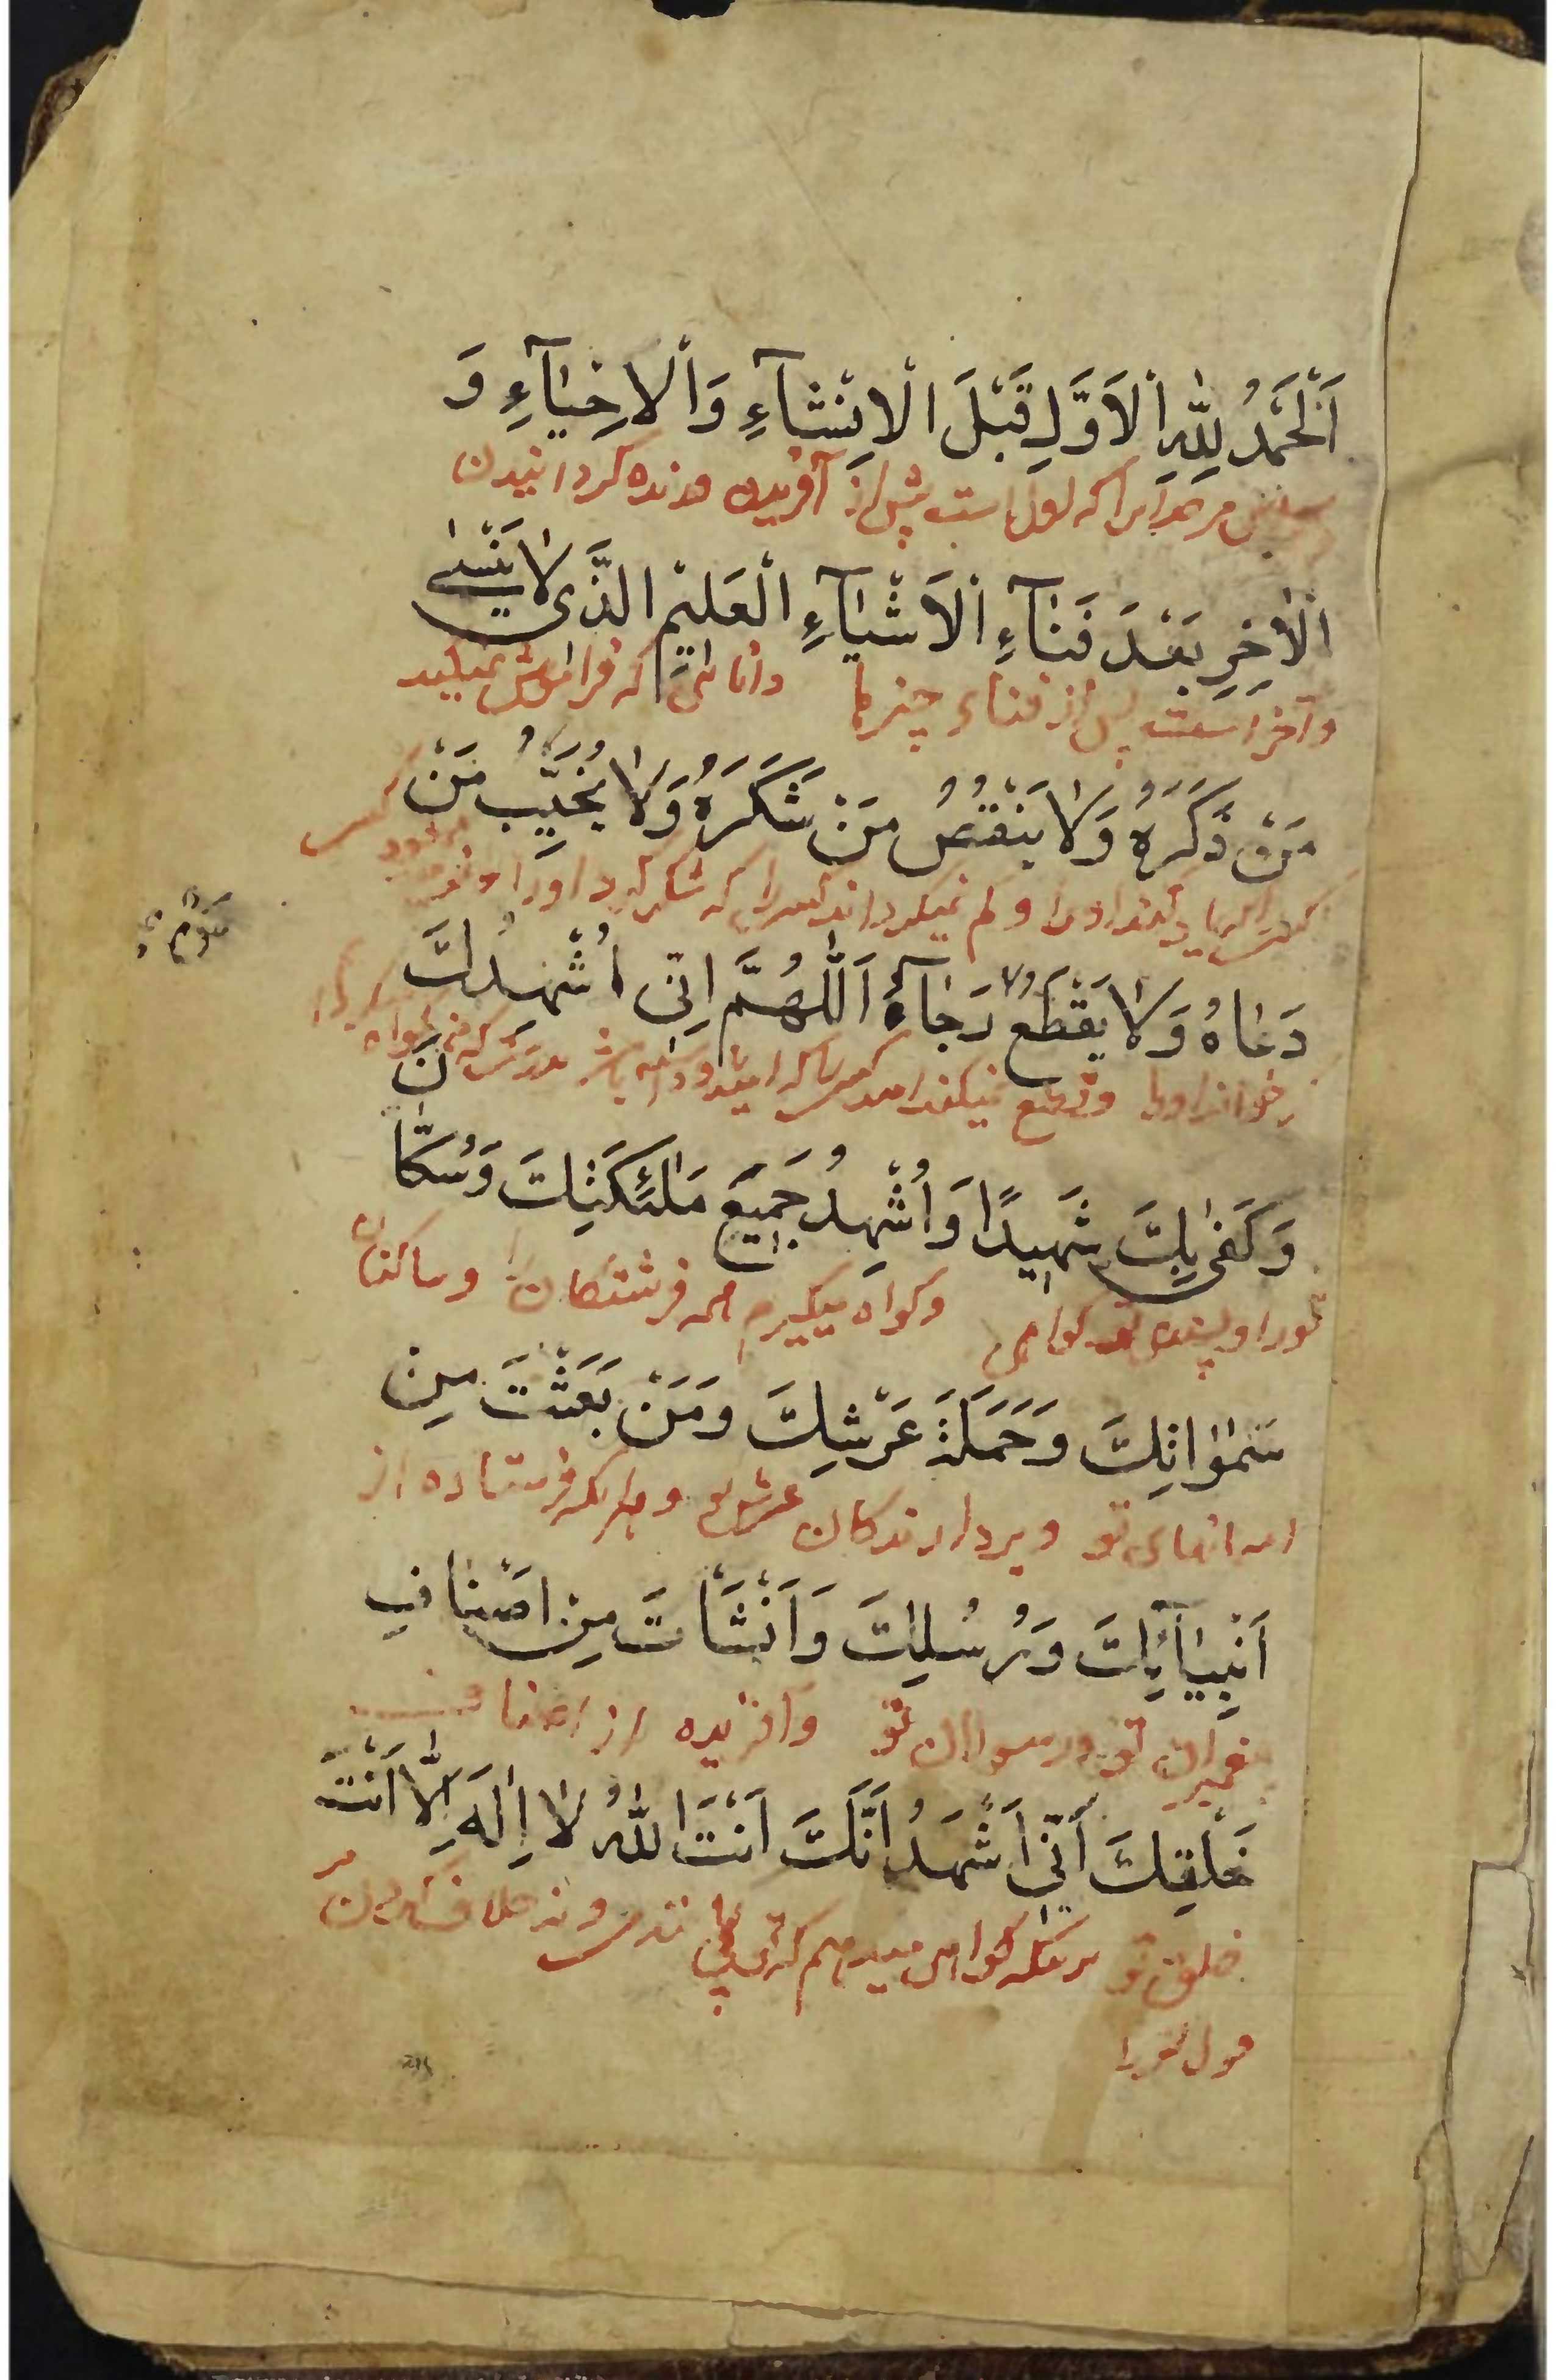 اَلْحَمْدُ لِلّٰهِ الْاَوَّلِ قَبْلَ الْاِنْشَآءِ وَالْاِحْيَآءِ وَ
مر خدایرا که اول است پیش از آفریدن و زنده کردانیدن
الْاٰخِرِ بَعْدَ فَنَآءِ الْاَشْيَآءِ الْعَلِيْمِ الَّذِى لَا يَنْسٰى
و آخر است پس از فناء چیزها دانائی که فراموش نمیکند
مَنْ ذَكَرَهُ وَلَا يَنْقُصُ مَنْ شَكَرَهُ وَلَا يُخَيِّبُ مَنْ
کسی را که یاد کند او را و کم نمیکرداند کسیرا که شکر کند او را
دَعَاهُ وَلَا يَقْطَعُ رَجَآءَ اَللّٰهُمَّ اِنّى اُشْهِدُكَ
بخواند او را و قطع نمیکند امید
وَكَفٰى بِكَ شَهِيدًا وَاُشْهِدُ جَمِيعَ مَلٰئِكَتِكَ وَسُكّٰانَ
تو را و بسنده تو کواهی و کواه میکیرم همه فرشتکان را و ساکنان
سَمٰوٰاتِكَ وَحَمَلَةَ عَرْشِكَ وَمَنْ بَعَثْتَ مِن
اسمانهای تو و بردارندکان عرش تو و هر که فرستاده از
اَنْبِيٰآئِكَ وَرُسُلِكَ وَاَنْشَأْتَ مِنْ اَصْنَافِ
پیغمبران تو و رسولان تو و آفریده از اصناف
خَلْقِكَ اَنّى اَشْهَدُ اَنَّكَ اَنْتَ اللّٰهُ لَا اِلٰهَ اِلَّا اَنْتَ
خلق تو کواهی میدهم که توئی
قول تو را